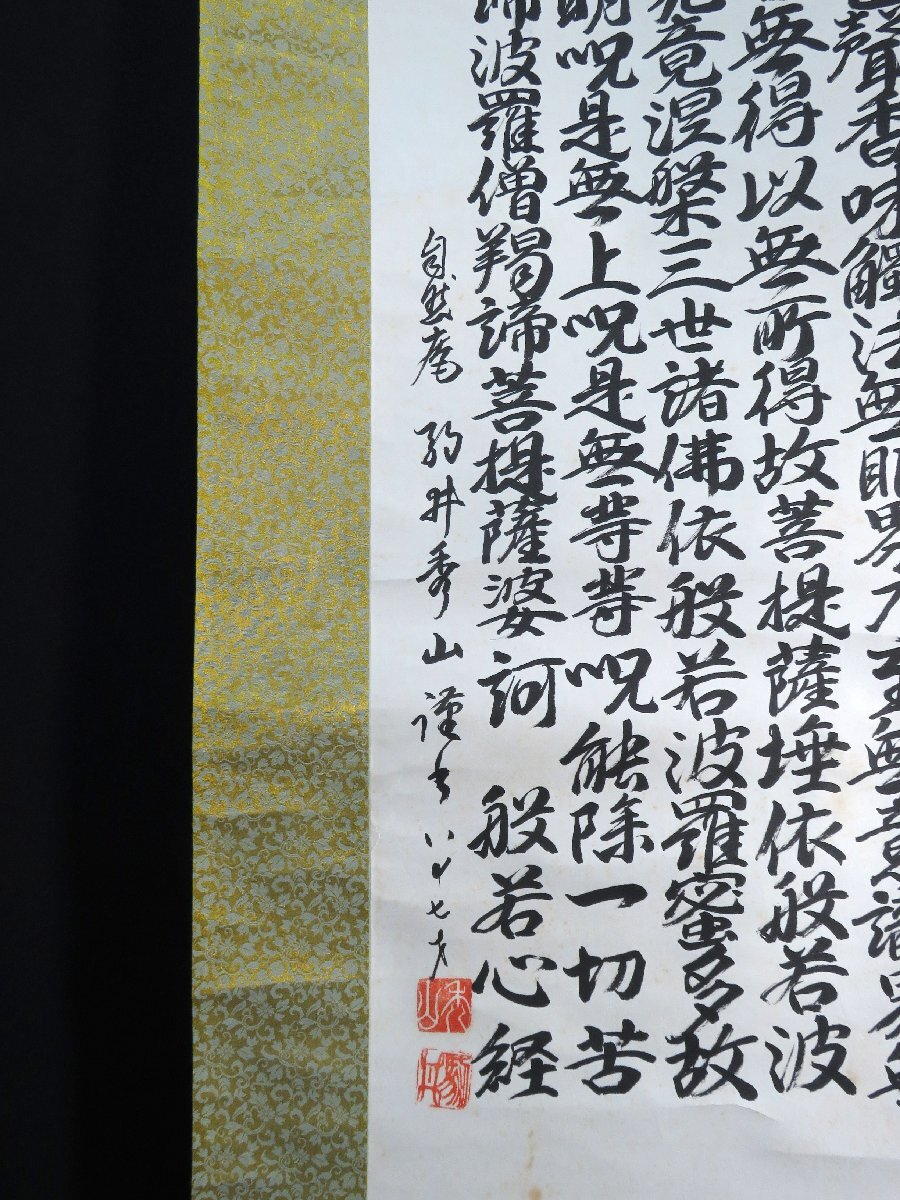 聲香味觸法無眼界乃至無意識界無
無得以無所得故菩提薩埵依般若波
究竟涅槃三世諸佛依般若波羅蜜多故
明呪是無上呪是無等等呪能除一切苦
諦波羅僧羯諦菩提薩婆訶 般若心経
自然庵 駒井秀山 謹書 八十七才
秀山
駒井